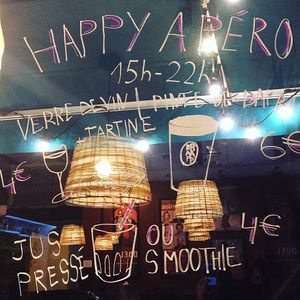 HAPPY APÉRO
15h-22h
VERRE DE VIN PINTE DE BAR
+ TARTINE
4€ 6€
JUS OU 4€
PRESSÉ SMOOTHIE